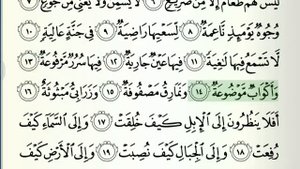 لَيْسَ لَهُمْ طَعَامٌ إِلَّا مِن ضَرِيعٍ ٦ لَّا يُسْمِنُ وَلَا يُغْنِى مِن جُوعٍ ٧
وُجُوهٌ يَوْمَئِذٍ نَّاعِمَةٌ ٨ لِّسَعْيِهَا رَاضِيَةٌ ٩ فِى جَنَّةٍ عَالِيَةٍ ١٠
لَّا تَسْمَعُ فِيهَا لَٰغِيَةً ١١ فِيهَا عَيْنٌ جَارِيَةٌ ١٢ فِيهَا سُرُرٌ مَّرْفُوعَةٌ ١٣
وَأَكْوَابٌ مَّوْضُوعَةٌ ١٤ وَنَمَارِقُ مَصْفُوفَةٌ ١٥ وَزَرَابِىُّ مَبْثُوثَةٌ ١٦
أَفَلَا يَنظُرُونَ إِلَى ٱلْإِبِلِ كَيْفَ خُلِقَتْ ١٧ وَإِلَى ٱلسَّمَآءِ كَيْفَ
رُفِعَتْ ١٨ وَإِلَى ٱلْجِبَالِ كَيْفَ نُصِبَتْ ١٩ وَإِلَى ٱلْأَرْضِ كَيْفَ